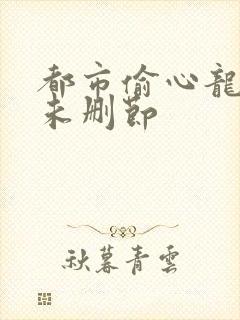 都市偷心龍
未删節
秋暮青雲